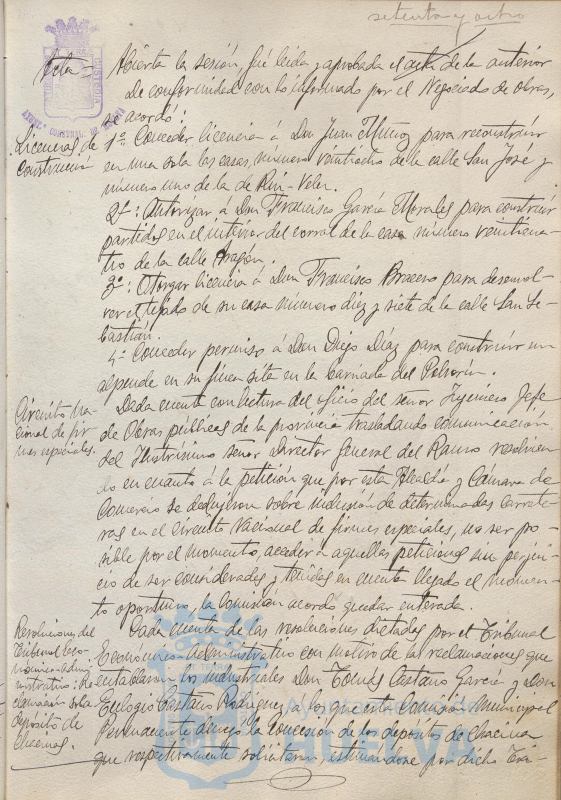 setenta y ocho
Acta = Abierta la sesión, fué leida y aprobada el acta de la anterior
De conformidad con lo informado por el Negociado de Obras,
se acordó:
Licencias de
Construcción
1º: Conceder licencia á Don Juan Muñoz para reconstruir
en una sola las casas, número veintiocho de la calle San José y
número uno de la de Rui-Velez.
2º: Autorizar á Don Francisco García Morales para construir
partidos en el interior del corral de la casa número veinticua-
tro de la calle Aragón.
3º: Otorgar licencia á Don Francisco Bracero para desenvol-
ver el tejado de su casa número diez y siete de la calle San Se-
bastián.
4º Conceder permiso á Don Diego Díaz para construir un
alpende en su finca sita en la barriada del Polvorin.
Circuito Na-
cional de fir-
mes especiales.
Dada cuenta con lectura del oficio del señor Ingeniero Jefe
de Obras públicas de la provincia trasladando comunicación
del Ilustrísimo señor Director General del Ramo resolvien-
do en cuanto á la petición que por esta Alcaldía y Cámara de
Comercio se dedujeron sobre inclusión de determinadas carrete-
ras en el Circuito Nacional de firmes especiales, no ser po-
sible por el momento, acceder a aquellas peticiones sin perjui-
cio de ser consideradas y tenidas en cuenta llegado el momen-
to oportuno, la Comisión acordó quedar enterada.
Resoluciones del
Tribunal Eco-
nómico-Admi-
nistrativo: Re-
clamación sobre
depósito de
Chacinas.
Dada cuenta de las resoluciones dictadas por el Tribunal
Económico-Administrativo con motivo de las reclamaciones que
entablaron los industriales Don Tomás Castaño García y Don
Eulogio Castaño Rodríguez a los que esta Comisión Municipal
Permanente denegó la concesión de los depósitos de Chacina
que respectivamente solicitaran, estimándose por dicho Tri-
Ayuntamiento de
HUELVA